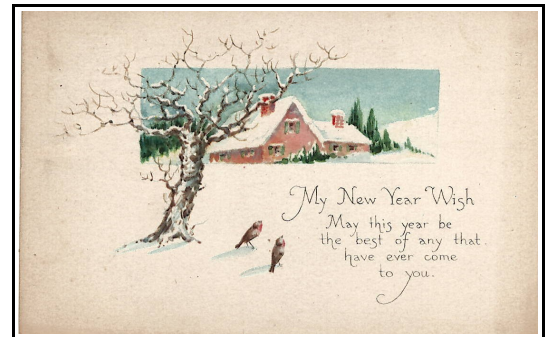 My New Year Wish
May this year be
the best of any that
have ever come
to you.